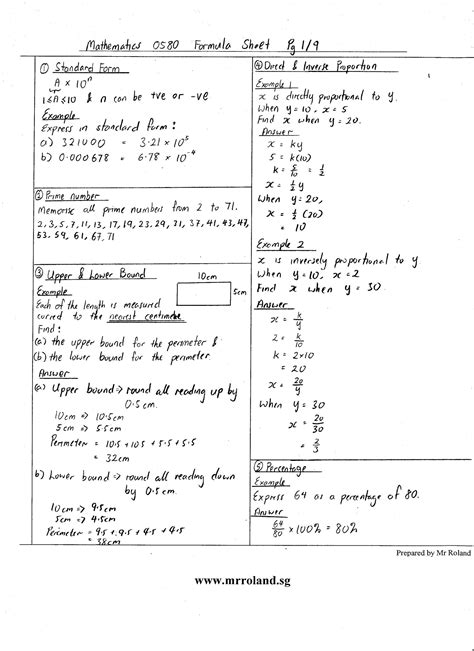 Mathematics 0580 Formula Sheet Pg 1/9
① Standard Form
A × 10ⁿ
1≤A≤10 & n can be +ve or -ve
Example
Express in standard form:
a) 321000 = 3.21 × 10⁵
b) 0.000678 = 6.78 × 10⁻⁴
② Prime number
Memorise all prime numbers from 2 to 71.
2, 3, 5, 7, 11, 13, 17, 19, 23, 29, 31, 37, 41, 43, 47,
53, 59, 61, 67, 71
③ Upper & Lower Bound
10cm
5cm
Example
Each of the length is measured
correct to the nearest centimetre.
Find:
(a) the upper bound for the perimeter &
(b) the lower bound for the perimeter.
Answer
(a) Upper bound ⇒ round all reading up by
0.5cm.
10cm ⇒ 10.5cm
5cm ⇒ 5.5cm
Perimeter = 10.5 + 10.5 + 5.5 + 5.5
= 32cm
b) Lower bound ⇒ round all reading down
by 0.5cm.
10cm ⇒ 9.5cm
5cm ⇒ 4.5cm
Perimeter = 9.5 + 9.5 + 4.5 + 4.5
= 38cm
④ Direct & Inverse Proportion
Example 1
x is directly proportional to y.
When y = 10, x = 5
Find x when y = 20.
Answer
x = ky
5 = k(10)
k = 5/10 = 1/2
x = 1/2 y
When y = 20,
x = 1/2 (20)
= 10
Example 2
x is inversely proportional to y
When y = 10, x = 2
Find x when y = 30
Answer
x = k/y
2 = k/10
k = 2×10
= 20
x = 20/y
When y = 30
x = 20/30
= 2/3
⑤ Percentage
Example
Express 64 as a percentage of 80.
Answer
64/80 × 100% = 80%
Prepared by Mr Roland
www.mrroland.sg